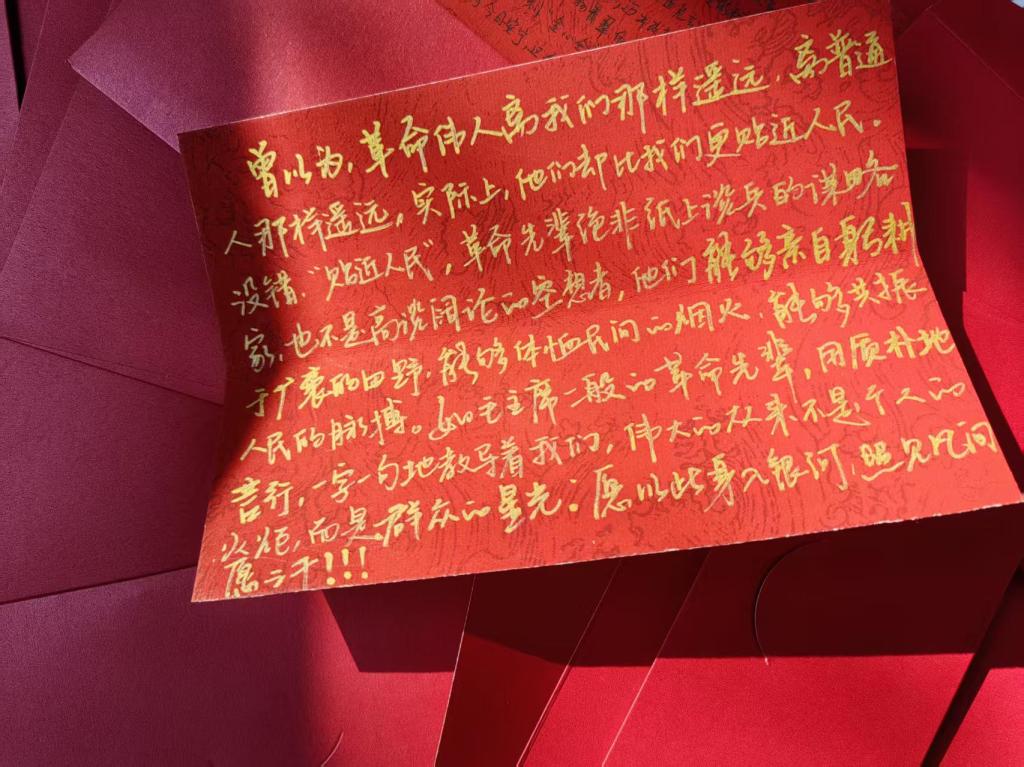 曾以为,革命伟人离我们那样遥远,离普通
人那样遥远,实际上,他们却比我们更贴近人民。
没错,“贴近人民”,革命先辈绝非纸上谈兵的谋略
家,也不是高谈阔论的空想者,他们能够亲自躬耕
于广袤的田野,能够体恤民间的烟火,能够共振
人民的脉搏。如毛主席一般的革命先辈,用质朴地
言行,一字一句地教导着我们,伟大的从来不是个人的
火炬,而是群众的星光。愿以此身入银河,照见凡间
愿千!!!